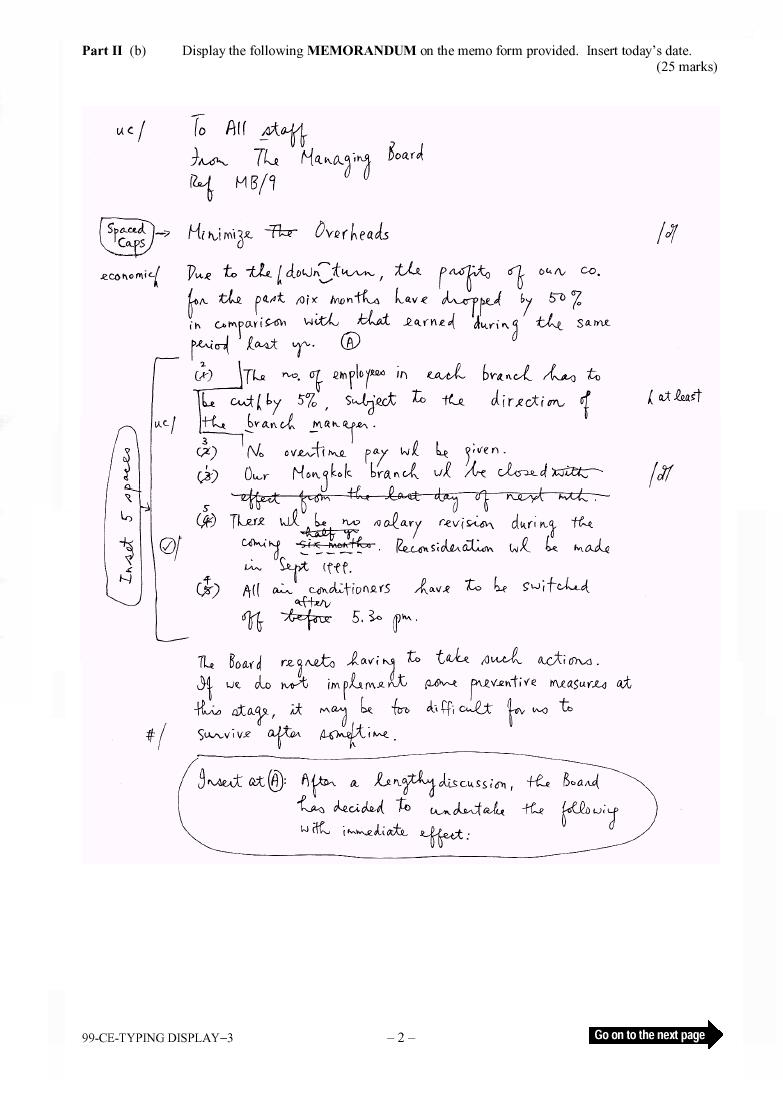 Part II (b) Display the following MEMORANDUM on the memo form provided. Insert today's date.
(25 marks)
uc/ To All staff
From The Managing Board
Ref MB/9
Spaced Caps → Minimize The Overheads
economic/ Due to the down turn, the profits of our co.
for the past six months have dropped by 50%
in comparison with that earned during the same
period last yr. (A)
2 (1) The no. of employees in each branch has to
be cut by 5%, subject to the direction of at least
uc/ the branch manager.
3 (2) No overtime pay wl be given.
1 (3) Our Mongkok branch wl be closed with
effect from the last day of next mth.
5 (4) There wl be no salary revision during the
half yr
coming six months. Reconsideration wl be made
in Sept 1999.
4 (5) All air conditioners have to be switched
after
off before 5.30 pm.
Inset 5 spaces
The Board regrets having to take such actions.
If we do not implement some preventive measures at
this stage, it may be too difficult for us to
#/ survive after sometime.
Insert at (A): After a lengthy discussion, the Board
has decided to undertake the following
with immediate effect:
99-CE-TYPING DISPLAY–3 – 2 – Go on to the next page